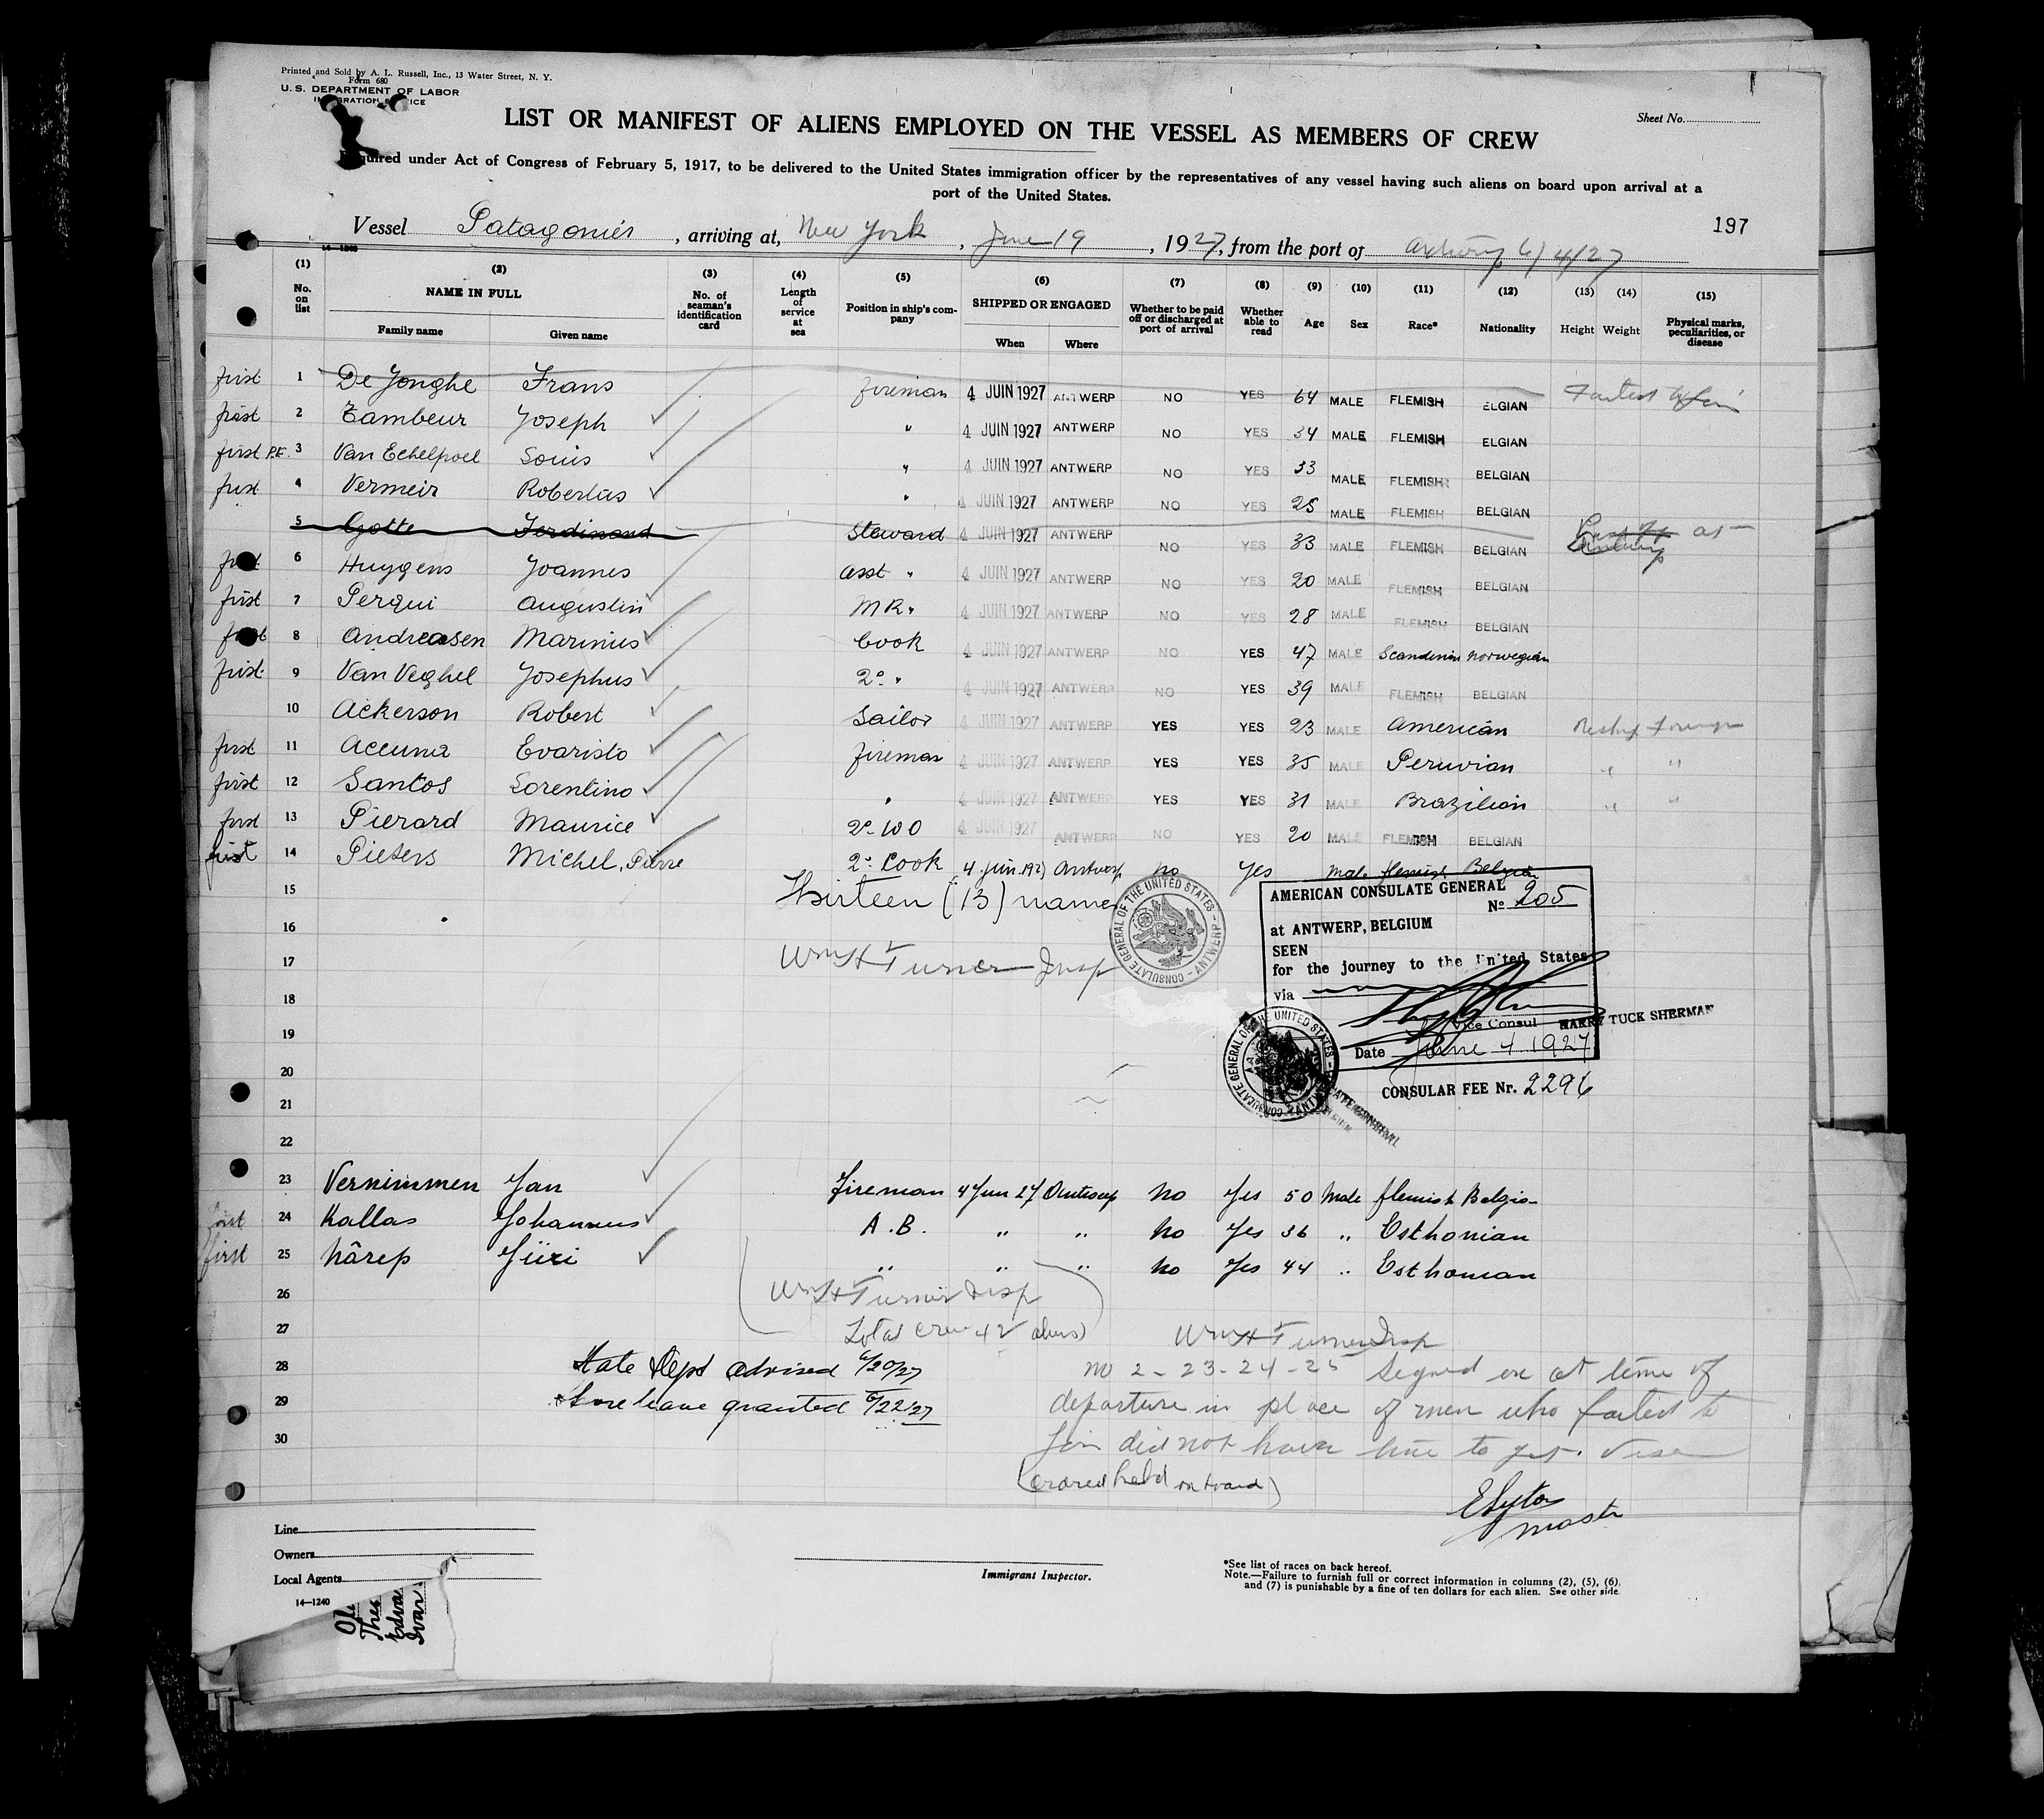 Printed and Sold by A. L. Russell, Inc., 13 Water Street, N. Y.
Form 680
U. S. DEPARTMENT OF LABOR
Sheet No.
LIST OR MANIFEST OF ALIENS EMPLOYED ON THE VESSEL AS MEMBERS OF CREW
under Act of Congress of February 5, 1917, to be delivered to the United States immigration officer by the representatives of any vessel having such aliens on board upon arrival at a
port of the United States.
197
Vessel Patagonier, arriving at, New York, June 19, 1927, from the port of Antwerp 6/4/27
(1) (2) (3) (4) (5) (6) (7) (8) (9) (10) (11) (12) (13) (14) (15)
No. on list NAME IN FULL Family name Given name No. of seaman's identification card Length of service at sea Position in ship's company SHIPPED OR ENGAGED When Where Whether to be paid off or discharged at port of arrival Whether able to read Age Sex Race* Nationality Height Weight Physical marks, peculiarities, or disease
first 1 De Jonghe Frans fireman 4 JUIN 1927 ANTWERP NO YES 64 MALE FLEMISH ELGIAN Failed to join
first 2 Tambeur Joseph " 4 JUIN 1927 ANTWERP NO YES 34 MALE FLEMISH ELGIAN
first P.E. 3 Van Echelpoel Louis " 4 JUIN 1927 ANTWERP NO YES 33 MALE FLEMISH BELGIAN
first 4 Vermeir Robertus " 4 JUIN 1927 ANTWERP NO YES 25 MALE FLEMISH BELGIAN
5 Gotte Ferdinand Steward 4 JUIN 1927 ANTWERP NO YES 33 MALE FLEMISH BELGIAN at
6 Huygens Joannes asst " 4 JUIN 1927 ANTWERP NO YES 20 MALE FLEMISH BELGIAN
first 7 Perqui Augustin MR " 4 JUIN 1927 ANTWERP NO YES 28 MALE FLEMISH BELGIAN
first 8 Andreasen Marinius Cook 4 JUIN 1927 ANTWERP NO YES 47 MALE Norwegian
first 9 Van Veghel Josephus 2º " 4 JUIN 1927 ANTWERP NO YES 39 MALE FLEMISH BELGIAN
10 Ackerson Robert Sailor 4 JUIN 1927 ANTWERP YES YES 23 MALE American
first 11 Accuna Evaristo fireman 4 JUIN 1927 ANTWERP YES YES 35 MALE Peruvian " "
first 12 Santos Lorentino " 4 JUIN 1927 ANTWERP YES YES 31 MALE Brazilian " "
first 13 Pierard Maurice 2º WO 4 JUIN 1927 ANTWERP NO YES 20 MALE FLEMISH BELGIAN
first 14 Pieters Michel, Pierre 2º Cook 4 Juin 1927 Antwerp no yes male flemish Belgian
15 Thirteen (13) names
16
17 Wm H Turner Insp
CONSULATE GENERAL OF THE UNITED STATES - ANTWERP -
AMERICAN CONSULATE GENERAL
No 205
at ANTWERP, BELGIUM
SEEN
for the journey to the United States
via
Vice Consul HARRY TUCK SHERMAN
Date June 4 1927
CONSULAR FEE Nr. 2296
CONSULATE GENERAL OF THE UNITED STATES - ANTWERP -
18
19
20
21
22
23 Vernimmen Jan Fireman 4 Jun 27 Antwerp No Yes 50 Male flemish Belgian
first 24 Kallas Johannes A.B. " " No Yes 36 " Esthonian
first 25 Närep Jüri " " " No Yes 44 " Esthonian
26 Wm H Turner Insp
27 Total crew 42 aliens)
Wm H Turner Insp
28 State Dept advised 6/20/27
29 Shore leave granted 6/22/27
30
No 2 - 23 - 24 - 25 Signed on at time of
departure in place of men who failed to
join did not have time to get visa
(ordered held on board)
master
Line
Owners
Local Agents
14—1240
Immigrant Inspector.
*See list of races on back hereof.
Note.—Failure to furnish full or correct information in columns (2), (5), (6),
and (7) is punishable by a fine of ten dollars for each alien. See other side.